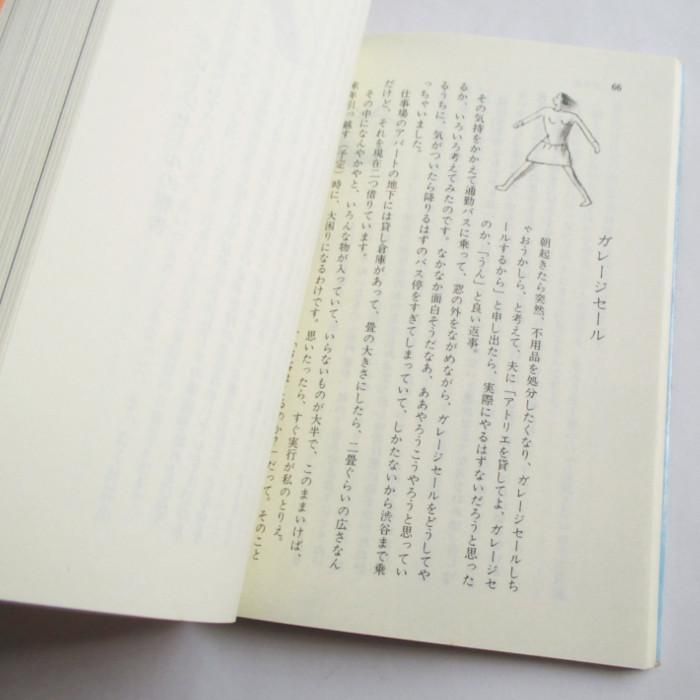 66
ガレージセール
朝起きたら突然、不用品を処分したくなり、ガレージセールしち
ゃおうかしら、と考えて、夫に「アトリエを貸してよ、ガレージセ
ールするから」と申し出たら、実際にやるはずないだろうと思った
のか、「うん」と良い返事。
その気持をかかえて通勤バスに乗って、窓の外をながめながら、ガレージセールをどうしてや
るか、いろいろ考えてみたのです。なかなか面白そうだなあ、ああやろうこうやろうと思ってい
るうちに、気がついたら降りるはずのバス停をすぎてしまっていて、しかたないから渋谷まで乗
っちゃいました。
仕事場のアパートの地下には貸し倉庫があって、畳の大きさにしたら、二畳ぐらいの広さなん
だけど、それを現在二つ借りています。
その中になんやかやと、いろんな物が入っていて、いらないものが大半で、このままいけば、
来年引っ越す（予定）時に、大困りになるわけです。思いたったら、すぐ実行が私のとりえ。
だって。そのこと